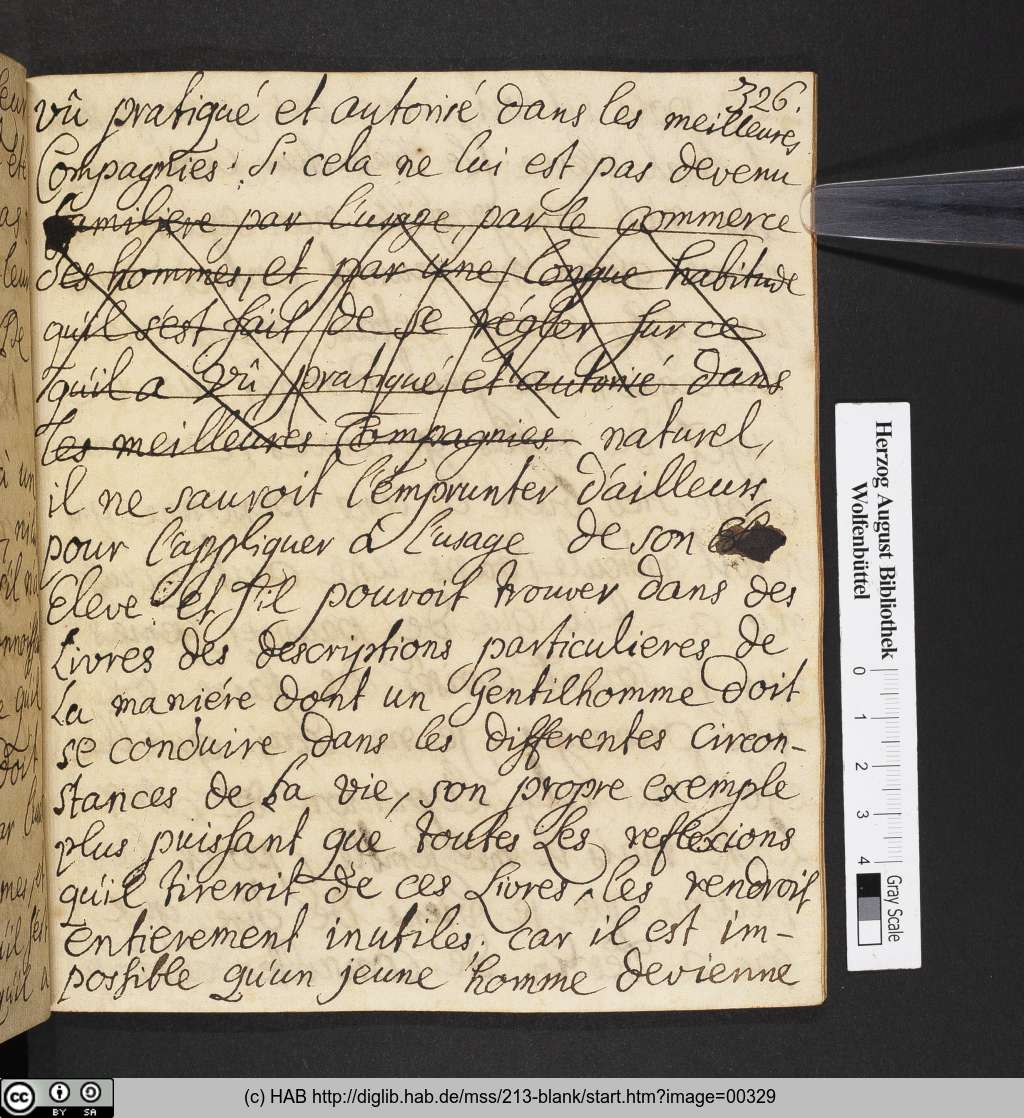 326.
vû pratiqué et autorisé dans les meilleures
Compagnies. Si cela ne lui est pas devenu
familiere par l'usage, par le commerce
des hommes, et par une longue habitude
qu'il s'est fait de se régler sur ce
qu'il a vû pratiqué et autorisé dans
les meilleures Compagnies naturel,
il ne sauroit l'emprunter d'ailleurs,
pour l'appliquer à l'usage de son
Eleve: et s'il pouvoit trouver dans des
Livres des descriptions particulieres de
La maniére dont un Gentilhomme doit
se conduire dans les differentes circon-
stances de la vie, son propre exemple
plus puissant que toutes les reflexions
qu'il tireroit de ces Livres, les rendroit
entierement inutiles; car il est im-
possible qu'un jeune homme devienne
Herzog August Bibliothek
Wolfenbüttel
0 1 2 3 4
Gray Scale
cc BY SA
(c) HAB http://diglib.hab.de/mss/213-blank/start.htm?image=00329